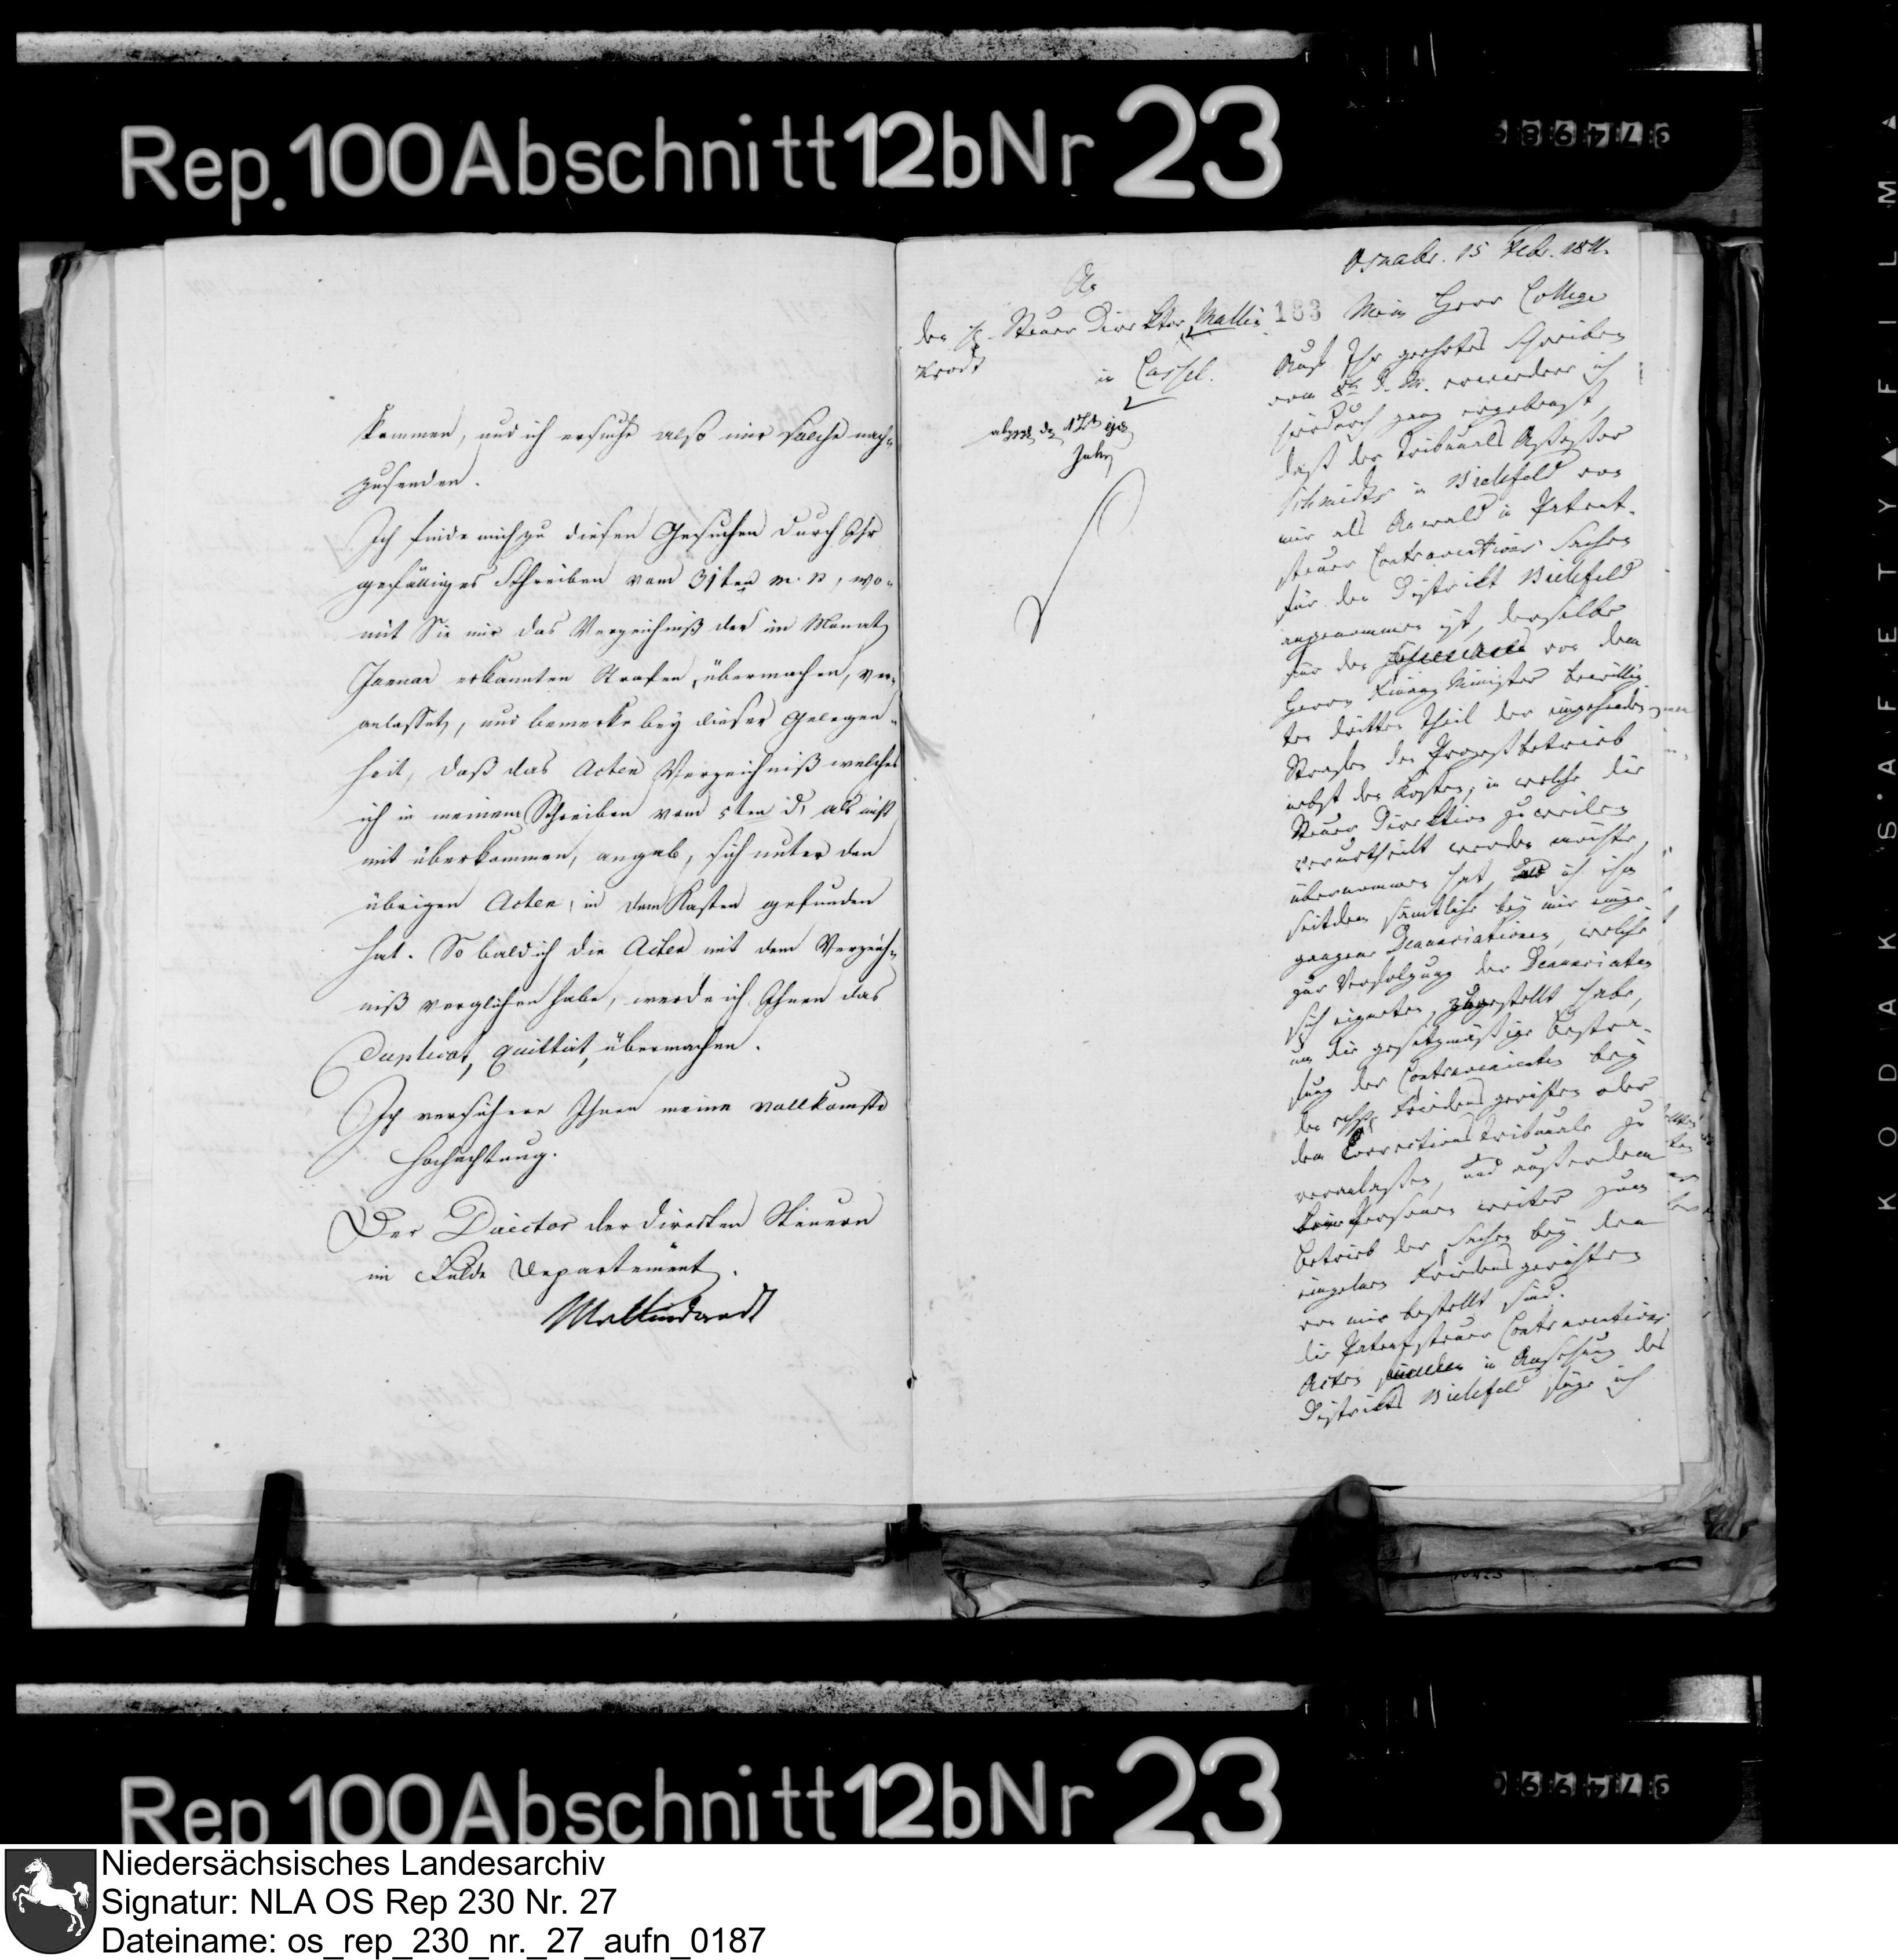 Rep. 100 Abschnitt 12b Nr 23
kommen, und ich ersuche also mir solche nach-
zusenden.
Ich finde mich zu diesen Gesuchen durch Ihr
gefälliges Schreiben vom 31ten m. p, wo-
mit Sie mir das Verzeichniß der im Monat
Januar erkannten Strafen, übermachen, ver-
anlasset, und bemerke bey dieser Gelegen-
heit, daß das Acten Verzeichniß welches
ich in meinem Schreiben vom 5ten d. als nicht
mit überkommen, angab, sich unter den
übrigen Acten, in dem Kasten gefunden
hat. So bald ich die Acten mit dem Verzeich-
niß verglichen habe, werde ich Ihnen das
Duplicat, quittirt, übermachen.
Ich versichere Ihnen meine vollkomste
Hochachtung.
Der Director der directen Steuern
im Fulda Departement.
Mallinckrodt
An
den H. Steuer Direktor Mallin
krodt
in Cassel.
183
Osnabr. 15 Febr. 1811.
Mein Herr College
Auf Ihr geehrtes Schreiben
vom 8t d. M. erwiedere ich
hierdurch ganz ergebenst,
daß der Tribunals Assessor
Schmidts in Bielefeld von
mir als Anwald in Patent-
steuer Contraventions Sachen
für den Distrikt Bielefeld
angenommen ist, derselbe
für den von dem
Herrn Finanz Minister bewillig
ten dritten Theil der eingehenden
Strafen den Prozeßbetrieb
nebst den Kosten, in welche die
Steuer Direktion zuweilen
verurtheilt werden möchte,
übernommen hat, ich ihm
seitdem sämtliche bey mir einge
gangene Denunciationen, welche
zur Verfolgung der Denunciaten
sich eigneten, zugestellt habe,
um die gesetzmäßige Bestra-
fung der Contravenienten bey
den Friedensgerichten oder
dem Corrections Tribunale zu
veranlassen, und außerdem
keine Personen weiter zum
Betrieb der Sachen bey den
einzelnen Friedensgerichten
von mir bestellt sind.
Die Patentsteuer Contraventions
Acten in Ansehung des
Distrikts Bielefeld füge ich
Rep 100 Abschnitt 12b Nr 23
KODAK·SAFETY FILM
Niedersächsisches Landesarchiv
Signatur: NLA OS Rep 230 Nr. 27
Dateiname: os_rep_230_nr._27_aufn_0187